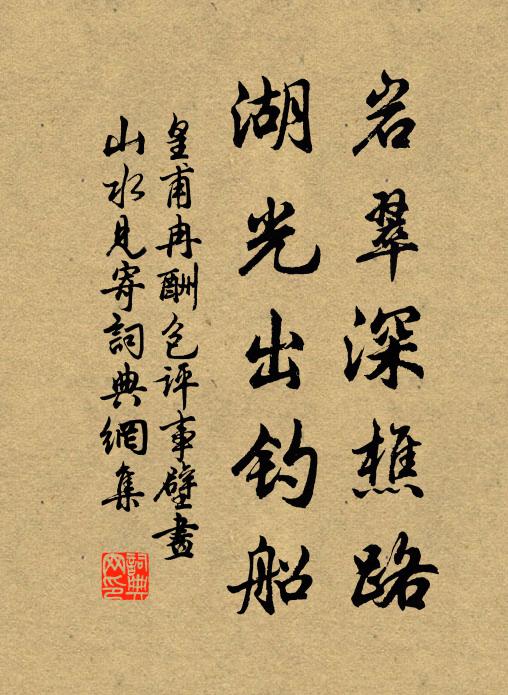 岩翠深樵路
湖光出钓船
皇甫冉酬包评事壁畫
山水見寄詞典網集
詞典
网印